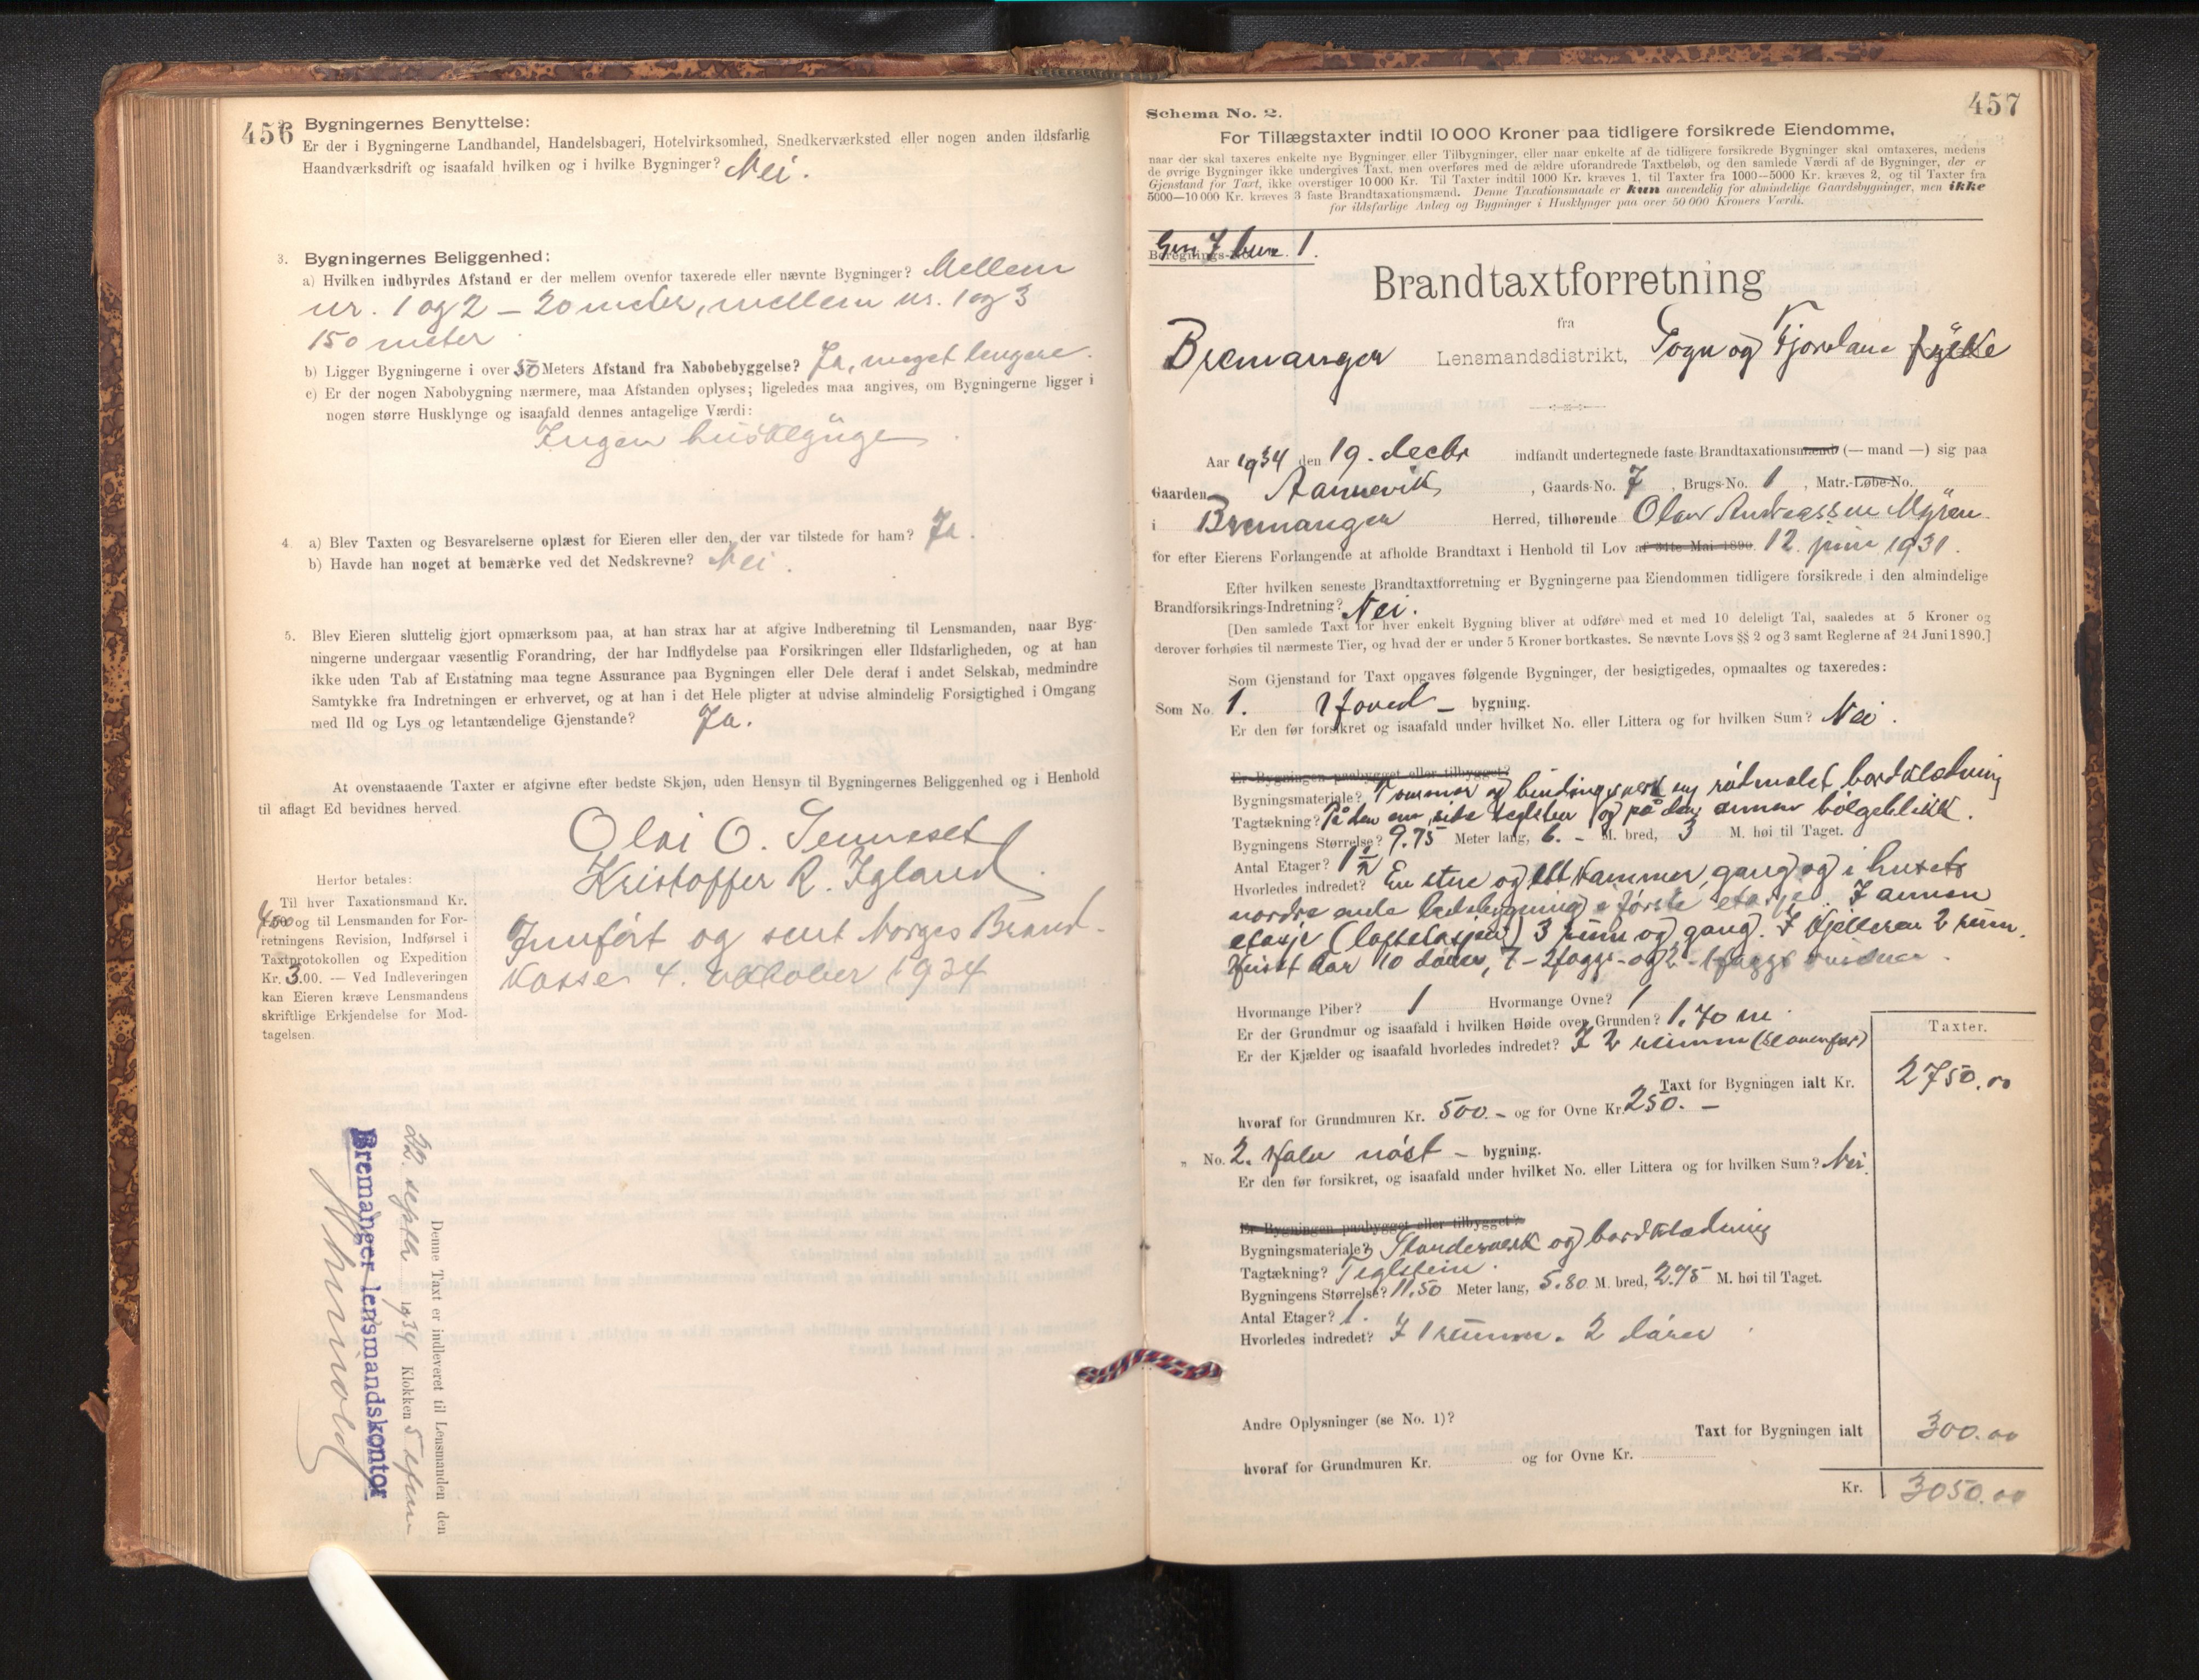 456
Bygningernes Benyttelse:
Er der i Bygningerne Landhandel, Handelsbageri, Hotelvirksomhed, Snedkerværksted eller nogen anden ildsfarlig
Haandværksdrift og isaafald hvilken og i hvilke Bygninger? Nei.
3. Bygningernes Beliggenhed:
a) Hvilken indbyrdes Afstand er der mellem ovenfor taxerede eller nævnte Bygninger? Mellem
nr. 1 og 2 – 20 meter, mellem nr. 1 og 3
150 meter
b) Ligger Bygningerne i over 50 Meters Afstand fra Nabobebyggelse? Ja, meget lengere.
c) Er der nogen Nabobygning nærmere, maa Afstanden oplyses; ligeledes maa angives, om Bygningerne ligger i
nogen større Husklynge og isaafald dennes antagelige Værdi:
Ingen husklynge.
4. a) Blev Taxten og Besvarelserne oplæst for Eieren eller den, der var tilstede for ham? Ja.
b) Havde han noget at bemærke ved det Nedskrevne? Nei.
5. Blev Eieren sluttelig gjort opmærksom paa, at han strax har at afgive Indberetning til Lensmanden, naar Byg-
ningerne undergaar væsentlig Forandring, der har Indflydelse paa Forsikringen eller Ildsfarligheden, og at han
ikke uden Tab af Erstatning maa tegne Assurance paa Bygningen eller Dele deraf i andet Selskab, medmindre
Samtykke fra Indretningen er erhvervet, og at han i det Hele pligter at udvise almindelig Forsigtighed i Omgang
med Ild og Lys og letantændelige Gjenstande? Ja.
At ovenstaaende Taxter er afgivne efter bedste Skjøn, uden Hensyn til Bygningernes Beliggenhed og i Henhold
til aflagt Ed bevidnes herved.
Olai O. Senneset
Kristoffer R. Igland.
Innført og sent Norges Brand-
kasse 4. oktober 1934
Herfor betales:
Til hver Taxationsmand Kr.
4.00 og til Lensmanden for For-
retningens Revision, Indførsel i
Taxtprotokollen og Expedition
Kr. 3.00. — Ved Indleveringen
kan Eieren kræve Lensmandens
skriftlige Erkjendelse for Mod-
tagelsen.
Denne Taxt er indleveret til Lensmanden den
22. septbr 1934 Klokken 5 efm
Bremanger lensmandskontor
457
Schema No. 2.
For Tillægstaxter indtil 10 000 Kroner paa tidligere forsikrede Eiendomme,
naar der skal taxeres enkelte nye Bygninger eller Tilbygninger, eller naar enkelte af de tidligere forsikrede Bygninger skal omtaxeres, medens
de øvrige Bygninger ikke undergives Taxt, men overføres med de ældre uforandrede Taxtbeløb, og den samlede Værdi af de Bygninger, der er
Gjenstand for Taxt, ikke overstiger 10 000 Kr. Til Taxter indtil 1000 Kr. kræves 1, til Taxter fra 1000—5000 Kr. kræves 2, og til Taxter fra
5000—10 000 Kr. kræves 3 faste Brandtaxationsmænd. Denne Taxationsmaade er kun anvendelig for almindelige Gaardsbygninger, men ikke
for ildsfarlige Anlæg og Bygninger i Husklynger paa over 50 000 Kroners Værdi.
Gnr 7 bnr. 1.
Brandtaxtforretning
fra
Bremanger Lensmandsdistrikt, Sogn og Fjordane fylke
Aar 1934 den 19. decbr indfandt undertegnede faste Brandtaxationsmænd (— mand —) sig paa
Gaarden Aannevik, Gaards-No. 7, Brugs-No. 1, Matr.-Løbe-No.
i Bremanger Herred, tilhørende Olav Andreassen Myren
for efter Eierens Forlangende at afholde Brandtaxt i Henhold til Lov af 31te Mai 1890. 12. juni 1931.
Efter hvilken seneste Brandtaxtforretning er Bygningerne paa Eiendommen tidligere forsikrede i den almindelige
Brandforsikrings-Indretning? Nei.
[Den samlede Taxt for hver enkelt Bygning bliver at udføre med et med 10 deleligt Tal, saaledes at 5 Kroner og
derover forhøies til nærmeste Tier, og hvad der er under 5 Kroner bortkastes. Se nævnte Lovs §§ 2 og 3 samt Reglerne af 24 Juni 1890.]
Som Gjenstand for Taxt opgaves følgende Bygninger, der besigtigedes, opmaaltes og taxeredes:
Som No. 1. Hoved – bygning.
Er den før forsikret og isaafald under hvilket No. eller Littera og for hvilken Sum? Nei.
Er Bygningen paabygget eller tilbygget?
Bygningsmateriale? Tømmer og bindingsverk my rødmalet bordklædning
Tagtækning? På den ene side teglsten og på den annen bølgeblikk.
Bygningens Størrelse? 9.75 Meter lang, 6. – M. bred, 3 M. høi til Taget.
Antal Etager? 1 1/2
Hvorledes indredet? En stue og ett kammer, gang og i husets
nordre ende i første etasje. I annen
etasje (loftetasjen) 3 rum og gang. I kjelleren 2 rum.
Huset har 10 dører, 7 – 2fags- og 2 – 1fags vinduer.
Hvormange Piber? 1 Hvormange Ovne? 1
Er der Grundmur og isaafald i hvilken Høide over Grunden? 1.70 m.
Er der Kjælder og isaafald hvorledes indredet? I 2 rumm (se ovenfor)
Taxter.
Taxt for Bygningen ialt Kr. 2750.00
hvoraf for Grundmuren Kr. 500.– og for Ovne Kr. 250.–
„ No. 2. Halv nøst – bygning.
Er den før forsikret, og isaafald under hvilket No. eller Littera og for hvilken Sum? Nei.
Er Bygningen paabygget eller tilbygget?
Bygningsmateriale? Standerverk og bordklædning
Tagtækning? Teglstein.
Bygningens Størrelse? 11.50 Meter lang, 5.80 M. bred, 2.75 M. høi til Taget.
Antal Etager? 1.
Hvorledes indredet? I 1 rumm. 2 dører.
Andre Oplysninger (se No. 1)?
Taxt for Bygningen ialt 300.00
hvoraf for Grundmuren Kr. og for Ovne Kr.
Kr. 3050.00